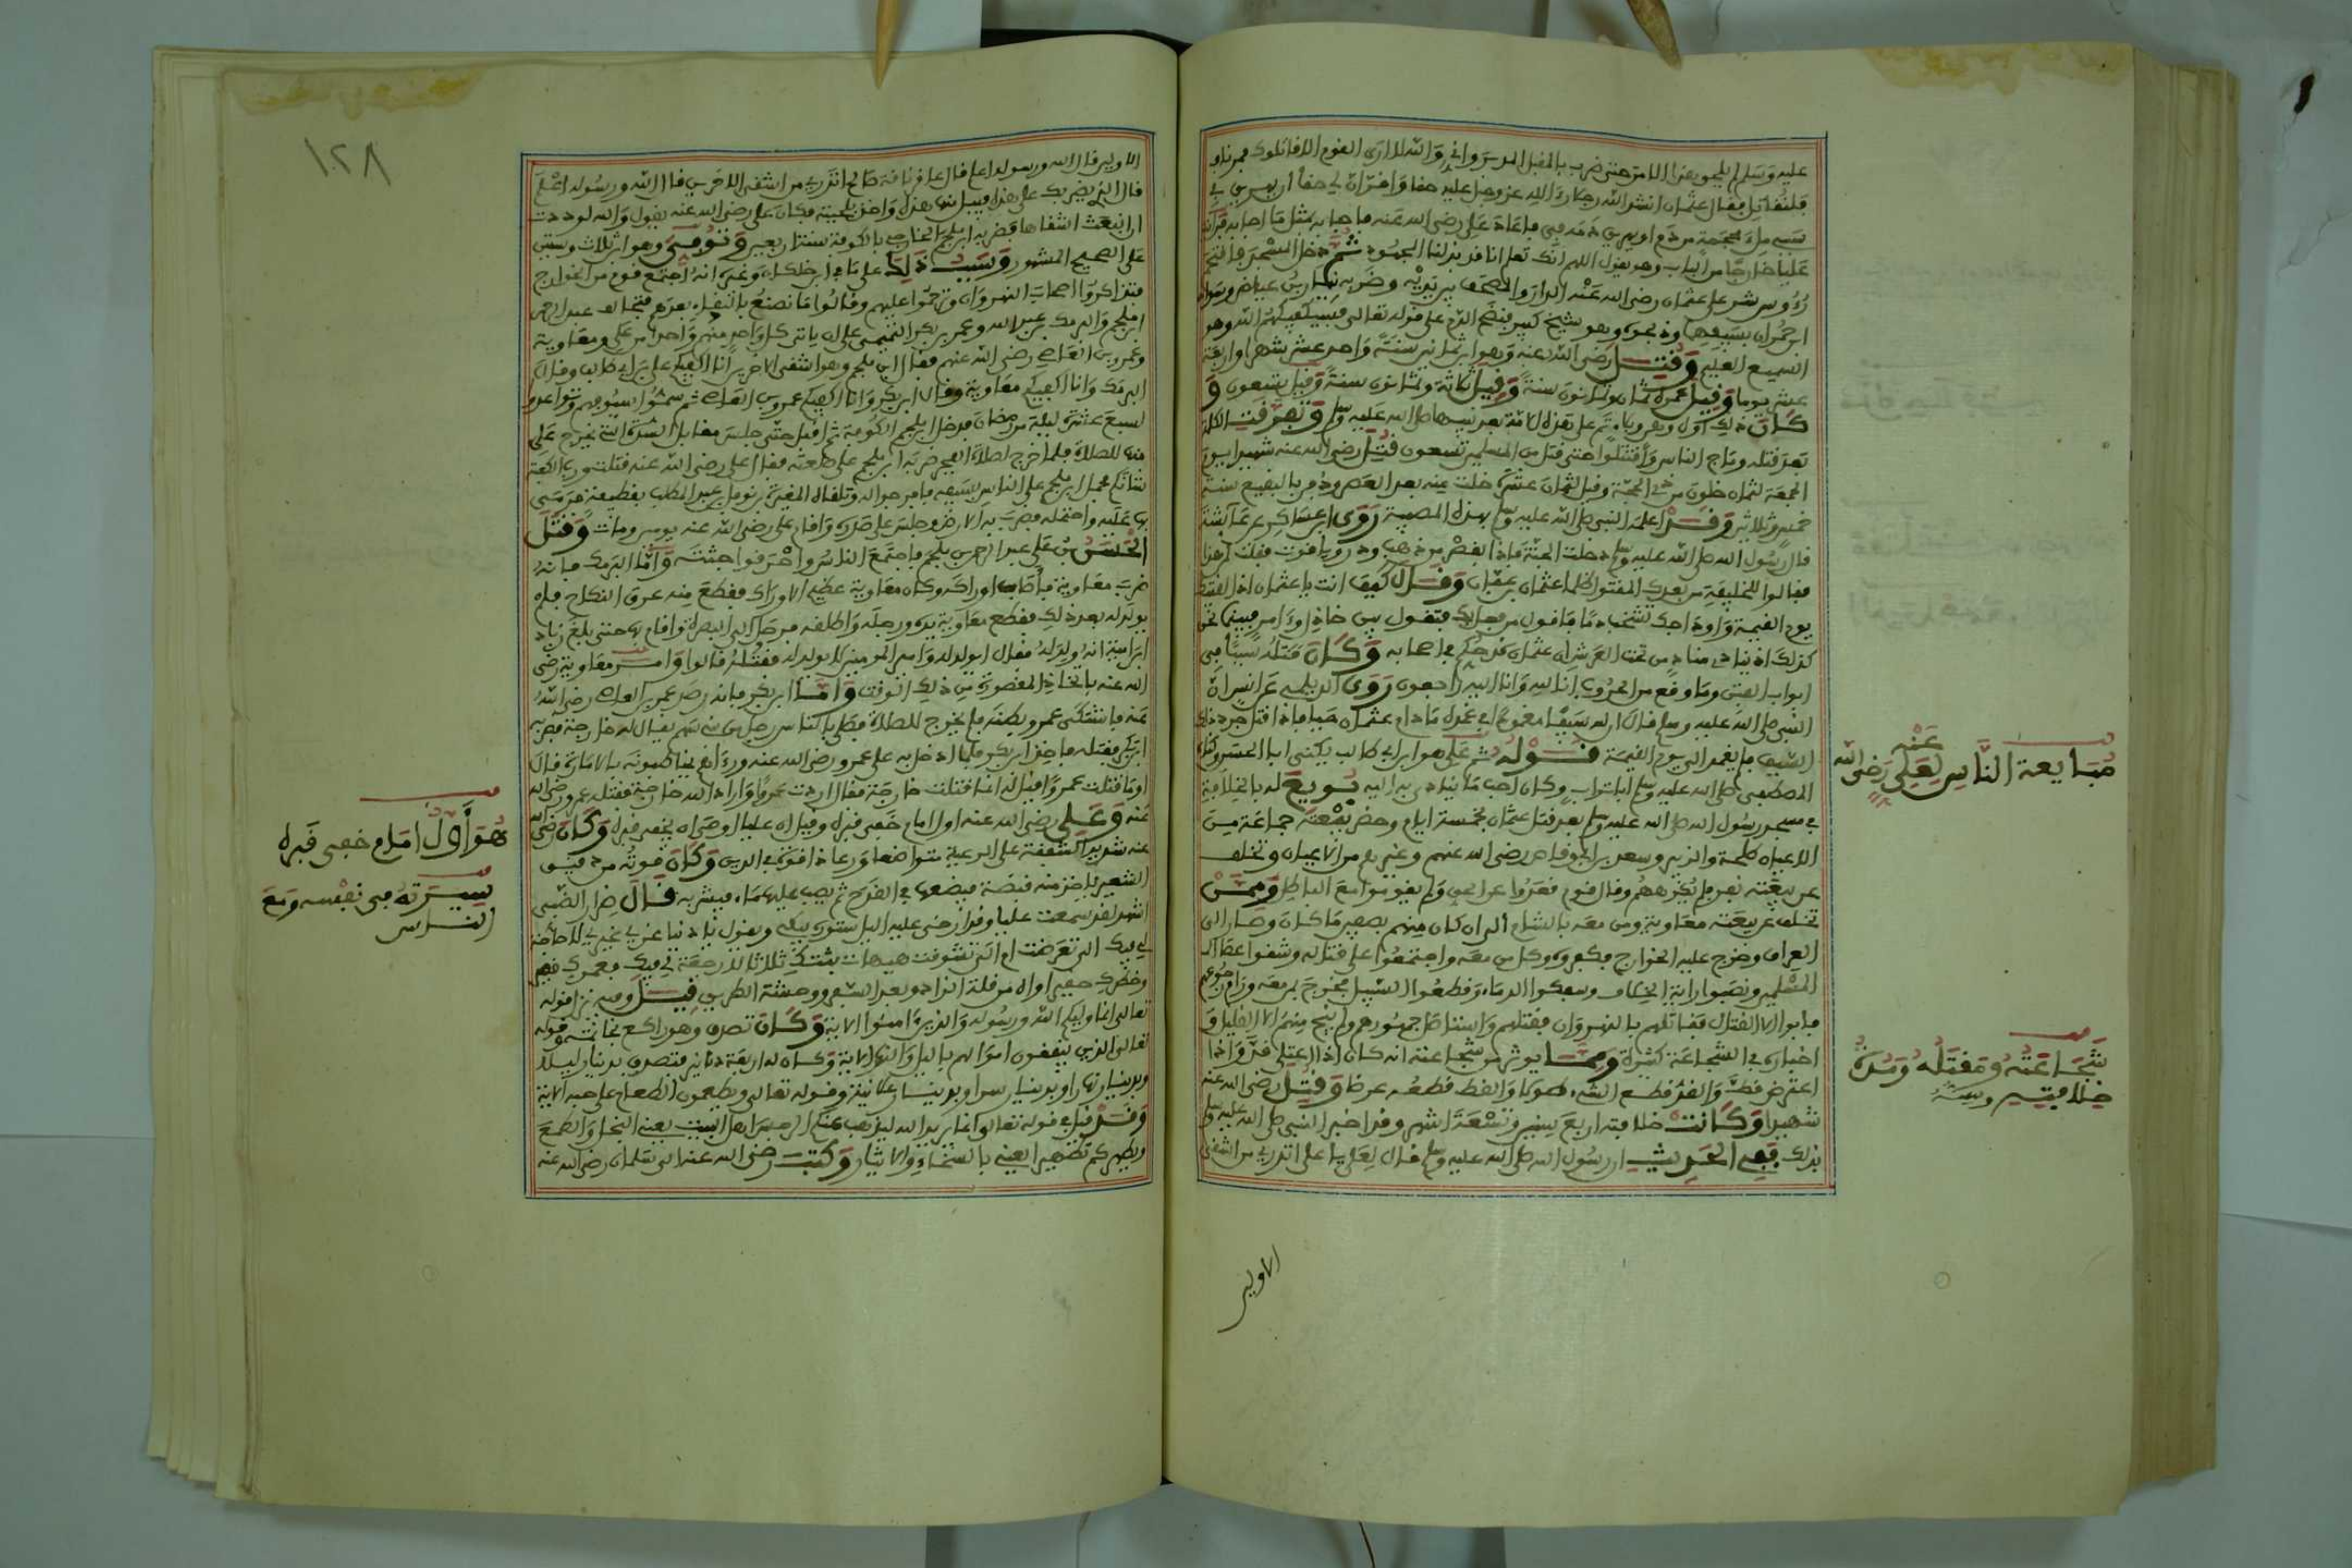 عليه وسلم
فلنقاتل فقال عثمان انشد الله رجلا رءا لله عز وجل عليه حقا
عليا خارجا من الباب وهو يقول اللهم انك تعلم انا قد بذلنا المجهود ثم دخل المسجد
وهو شيخ كبير فنضح الدم على قوله تعالى فسيكفيكهم الله وهو
السميع العليم وقتل رضي الله عنه وهو ابن ثمانين سنة واحد عشر شهرا واربعة
عشر يوما وقيل عمره ثمان وثمانون سنة وقيل ثلاثة وثمانون سنة وقيل تسعون و
بعد قتله وماج الناس واقتتلوا حتى قتل من المسلمين تسعون قتل رضي الله عنه شهيدا يوم
الجمعة لثمان خلون من ذي الحجة وقيل لثمان عشرة خلت منه بعد العصر ودفن بالبقيع سنة
خمس وثلاثين وقد اعلم النبي صلى الله عليه وسلم بهذه المصيبة روى ابن عساكر عن عائشة
قال رسول الله صلى الله عليه وسلم دخلت الجنة
فقالوا للخليفة من بعدك المقتول ظلما عثمان بن عفان وقال كيف انت يا عثمان اذا لقيتك
يوم القيمة واوداجك تشخب دما فاقول من فعل بك فتقول بين خاذل وءامر فبينما نحن
كذلك اذ ينادي مناد من تحت العرش ان عثمان قد حكم في اصحابه وكان قتله سببا في
ابواب الفتن وما وقع من الحروب انا لله وانا اليه راجعون روى الديلمي عن انس ان
النبي صلى الله عليه وسلم قال ان لله سيفا مغمودا في غمده ما دام عثمان حيا فاذا قتل جرد ذلك
السيف فلم يغمد الى يوم القيمة قوله ثم علي هو ابن ابي طالب يكنى ابا الحسن وكناه
المصطفى صلى الله عليه وسلم ابا تراب وكان احب ما ينادى به اليه بويع له بالخلافة
في مسجد رسول الله صلى الله عليه وسلم بعد قتل عثمان بخمسة ايام وحضر بيعته جماعة من
الاعيان طلحة والزبير وسعد بن ابي وقاص رضي الله عنهم وغيرهم من الاعيان وتخلف
عن بيعته نفر فلم يكرههم وقال قوم قعدوا عن الحق ولم يقوموا مع الباطل وممن
تخلف عن بيعته معاوية ومن معه بالشام الى ان كان منهم بصفين ما كان وصار الى
العراق وخرج عليه الخوارج فكفروه وكل من معه واجتمعوا على قتاله وشقوا عصا
المسلمين ونصبوا راية الخلاف وسفكوا الدماء وقطعوا السبيل فخرج بمن معه ورام رجوعهم
فابوا الا القتال فقاتلهم بالنهروان فقتلهم واستاصل جمهورهم ولم ينج منهم الا القليل و
اخباره في الشجاعة كثيرة ومما يوثر من شجاعته انه كان اذا اعتلى قد واذا
اعترض قط والقد قطع الشيء طولا والقط قطعه عرضا وقتل رضي الله عنه
شهيدا وكانت خلافته اربع سنين وتسعة اشهر وقد اخبر النبي صلى الله عليه وسلم
بذلك ففي الحديث ان رسول الله صلى الله عليه وسلم قال لعلي يا علي اتدري من اشقى
الاولين
مبايعة الناس لعلي رضي الله عنه
شجاعته ومقتله ومدة
خلافته وسنه
١٠٢٨
الاولين قال الله ورسوله اعلم قال عاقر ناقة صالح اتدري من اشقى الاخرين قال الله ورسوله اعلم
قال الذي يضربك على هذه فيبل منها هذه واخذ بلحيته فكان علي رضي الله عنه يقول والله لوددت
ان انبعث اشقاها فضربه ابن ملجم الخارجي بالكوفة سنة اربعين وتوفي وهو ابن ثلاث وستين
على الصحيح المشهور وسبب ذلك على ما في ابن خلكان وغيره انه اجتمع قوم من الخوارج
فتذاكروا اصحاب النهروان وترحموا عليهم وقالوا ما نصنع بالبقاء بعدهم فتحالف عبد الرحمن
ابن ملجم والبرك بن عبد الله وعمر بن بكر التميمي على ان ياتي كل واحد منهم واحدا من علي ومعاوية
وعمرو بن العاصي رضي الله عنهم فقال ابن ملجم وهو اشقى الاخرين انا اكفيكم علي بن ابي طالب وقال
البرك وانا اكفيكم معاوية وقال ابن بكر وانا اكفيكم عمرو بن العاصي ثم سموا سيوفهم وتواعدوا
لسبع عشرة ليلة من رمضان فدخل ابن ملجم الكوفة ثم اقبل حتى جلس مقابل السدة التي يخرج علي
منها للصلاة فلما خرج لصلاة الفجر ضربه ابن ملجم على هامته فقال علي رضي الله عنه فزت ورب الكعبة
شانكم فحمل ابن ملجم على الناس بسيفه فافرجوا له وتلقاه المغيرة بن نوفل بن عبد المطلب بقطيفة فرمى
بها عليه واحتمله فضرب به الارض وجلس على صدره واقام علي رضي الله عنه يومين ومات وقتل
الحسن بن علي عبد الرحمن بن ملجم فاجتمع الناس واحرقوا جثته واما البرك فانه
ضرب معاوية فاصاب اوراكه وكان معاوية عظيم الاوراك فقطع منه عرق النكاح فلم
يولد له بعد ذلك فقطع معاوية يده ورجله واطلقه فرحل الى البصرة واقام بها حتى بلغ زياد
ابن ابيه انه ولد له فقال ايولد له وامير المومنين لا يولد له فقتله قالوا وامر معاوية رضي
الله عنه باتخاذ المقصورة من ذلك الوقت واما ابن بكر فانه رصد عمرو بن العاصي رضي الله
عنه فاشتكى عمرو بطنه فلم يخرج للصلاة فصلى بالناس رجل من بني سهم يقال له خارجة فضربه
ابن بكر فقتله فاخذ ابن بكر فلما ادخل به على عمرو رضي الله عنه ورءاهم يخاطبونه بالامارة قال
اوما قتلت عمرا قيل له انما قتلت خارجة فقال اردت عمرا واراد الله خارجة فقتله عمرو رضي الله
عنه وعلي رضي الله عنه اول امام خفي قبره وقيل ان عليا اوصى ان يخفى قبره وكان رضي الله
عنه شديد الشفقة على الرعية متواضعا ورعا ذا قوة في الدين وكان قوته من دقيق
الشعير ياخذ منه قبضة فيضعها في القدح ثم يصب عليها ماء فيشربه قال ضرار الضبي
اشهد لقد سمعت عليا وقد ارخى عليه الليل ستوره يبكي ويقول يا دنيا غري غيري لا حاجة
لي فيك الي تعرضت ام الي تشوقت هيهات بتتك ثلاثا لا رجعة لي فيك فعمرك قصير
وخطرك حقير اواه من قلة الزاد وبعد السفر ووحشة الطريق قيل وفيه نزل قوله
تعالى انما وليكم الله ورسوله والذين ءامنوا الاية وكان تصدق وهو راكع بخاتمه وقوله
تعالى الذين ينفقون اموالهم بالليل والنهار الاية وكان له اربعة دنانير فتصدق بدينار ليلا
وبدينار نهارا وبدينار سرا وبدينار علانية وقوله تعالى ويطعمون الطعام على حبه الاية
وقد قيل في قوله تعالى انما يريد الله ليذهب عنكم الرجس اهل البيت يعني البخل والطمع
ويطهركم تطهيرا يعني بالسخاء والايثار وكتب رضي الله عنه الى سلمان رضي الله عنه
هو أول امام خفي قبره
سيرته في نفسه ومع
الناس